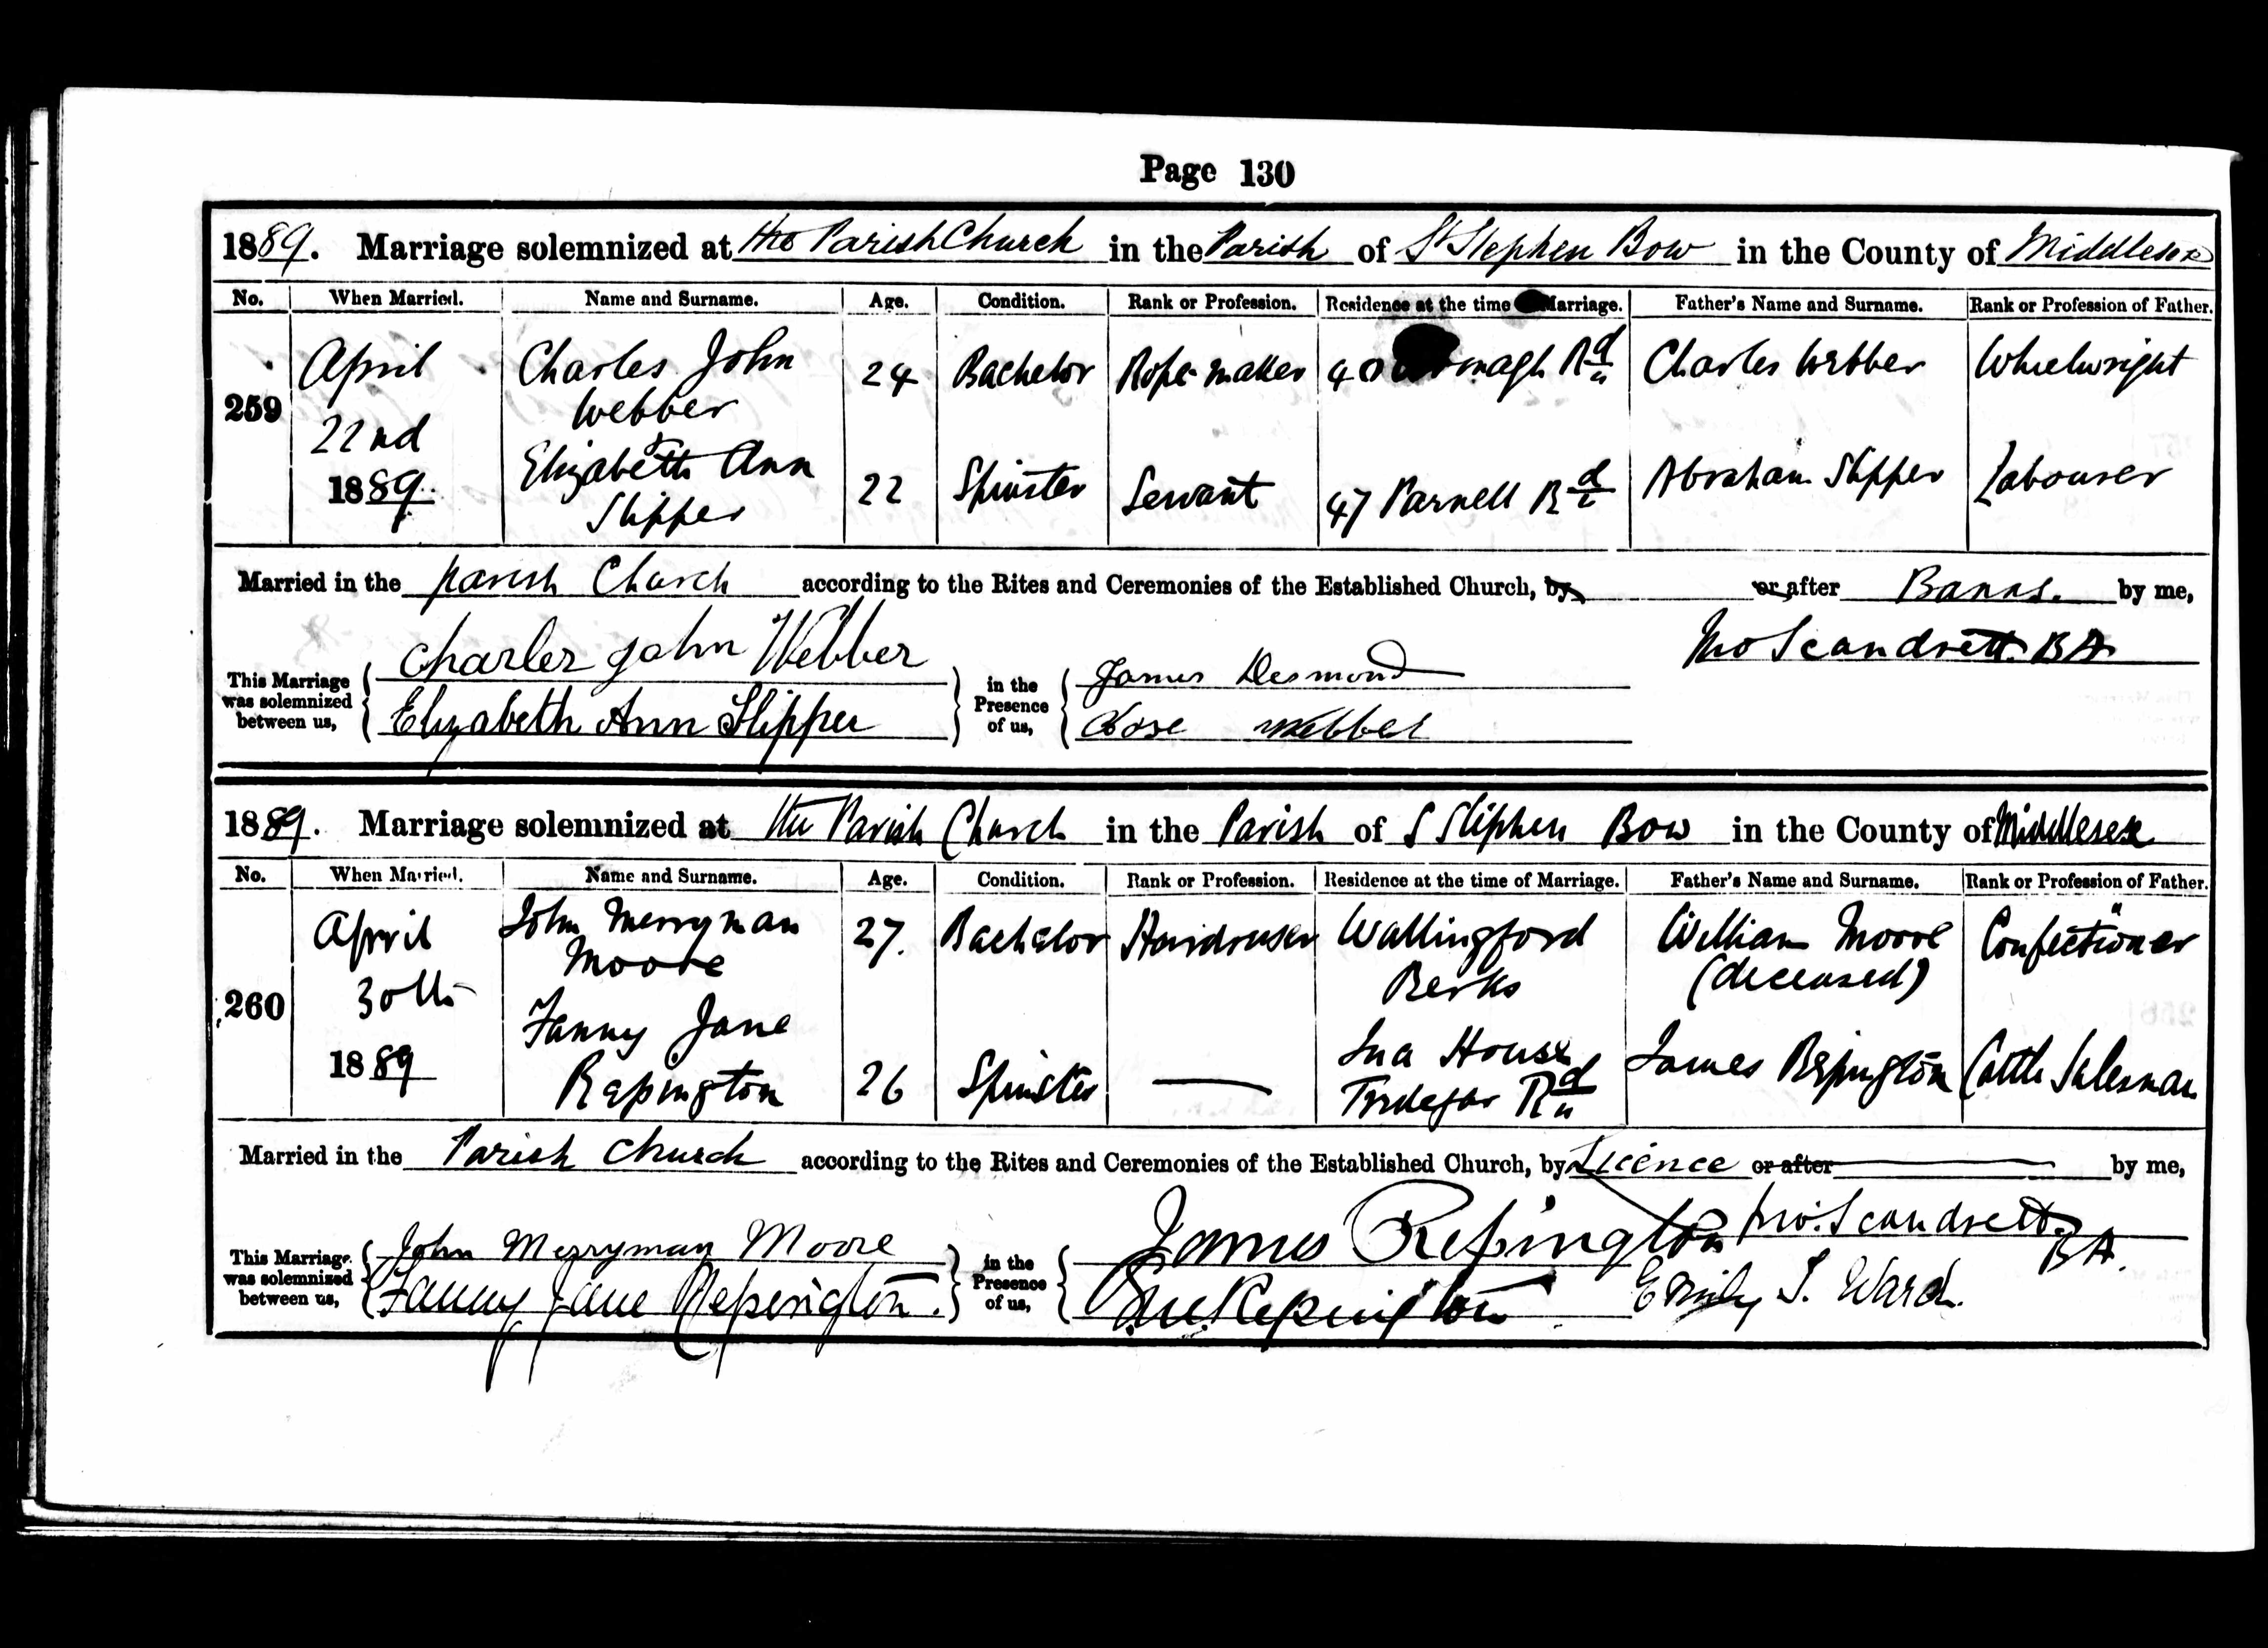 Page 130
1889. Marriage solemnized at the Parish Church in the Parish of St Stephen Bow in the County of Middlesex
No. When Married. Name and Surname. Age. Condition. Rank or Profession. Residence at the time Marriage. Father's Name and Surname. Rank or Profession of Father.
259 April 22nd 1889
Charles John Webber 24 Bachelor Rope maker 40 Rd Charles Webber Wheelwright
Elizabeth Ann Slipper 22 Spinster Servant 47 Parnell Rd Abraham Slipper Labourer
Married in the parish Church according to the Rites and Ceremonies of the Established Church, by or after Banns. by me,
Jno Scandrett BA
This Marriage was solemnized between us, Charles John Webber in the Presence of us, James Desmond
Elizabeth Ann Slipper Rose Webber
1889. Marriage solemnized at the Parish Church in the Parish of S Stephen Bow in the County of Middlesex
No. When Married. Name and Surname. Age. Condition. Rank or Profession. Residence at the time of Marriage. Father's Name and Surname. Rank or Profession of Father.
260 April 30th 1889
John Merryman Moore 27. Bachelor Hairdresser Wallingford Berks William Moore (deceased) Confectioner
Fanny Jane Repington 26 Spinster House Tredegar Rd James Repington Cattle Salesman
Married in the Parish Church according to the Rites and Ceremonies of the Established Church, by Licence or after by me,
Jno. Scandrett BA.
This Marriage was solemnized between us, John Merryman Moore in the Presence of us, James Repington
Fanny Jane Repington. Repington Emily S. Ward.